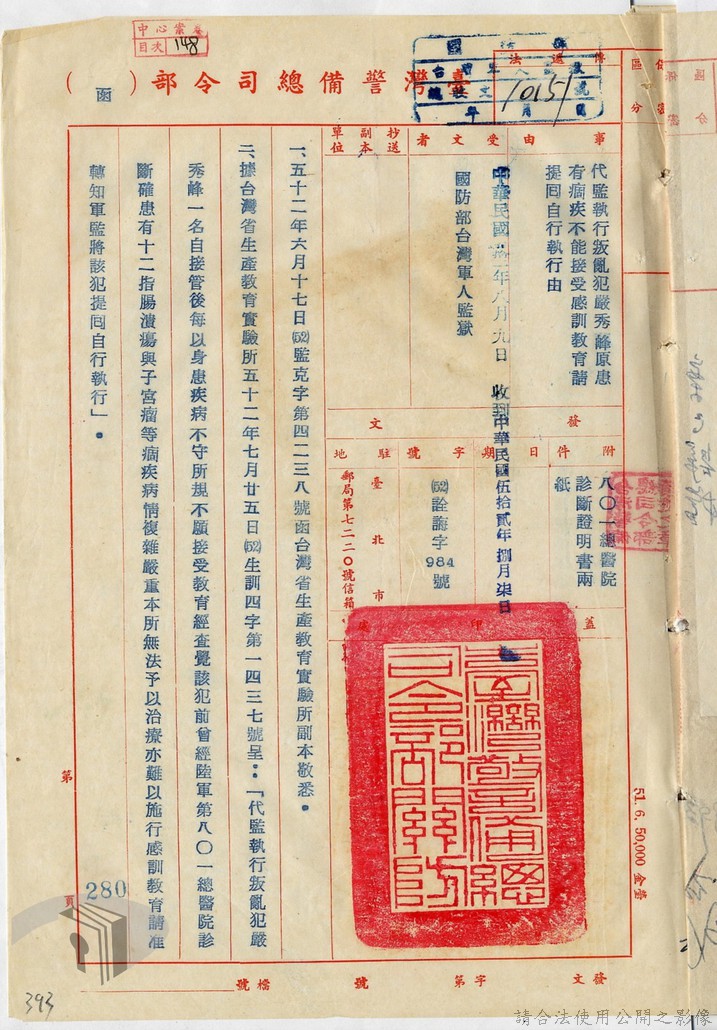 中心案卷
目次 148
臺灣警備總司令部（函）
10151
年 月 日
區分
事由
代監執行叛亂犯嚴秀峰原患
有痼疾不能接受感訓教育請
提囘自行執行由
受文者
國防部台灣軍人監獄
中華民國
年八月九日 收到
抄送
副本
單位
發文
附件
八〇一總醫院
診斷證明書兩
紙
日期
中華民國伍拾貳年 捌月柒日
字號
(52)詮誨字
984
號
駐地
臺北市
郵局第七二二〇號信箱
蓋印處
臺灣警備總司令部關防
一、五十二年六月十七日(52)監克字第四二三八號函台灣省生產教育實驗所副本敬悉。
二、據台灣省生產教育實驗所五十二年七月廿五日(52)生訓四字第一四三七號呈：「代監執行叛亂犯嚴
秀峰一名自接管後每以身患疾病不守所規不願接受教育經查覺該犯前曾經陸軍第八〇一總醫院診
斷確患有十二指腸潰瘍與子宮瘤等痼疾病情複雜嚴重本所無法予以治療亦難以施行感訓教育請准
轉知軍監將該犯提囘自行執行」。
第 280 頁
51. 6. 50,000
發文 字第 號 檔號
393
請合法使用公開之影像